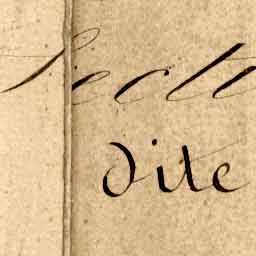 Secte
dite